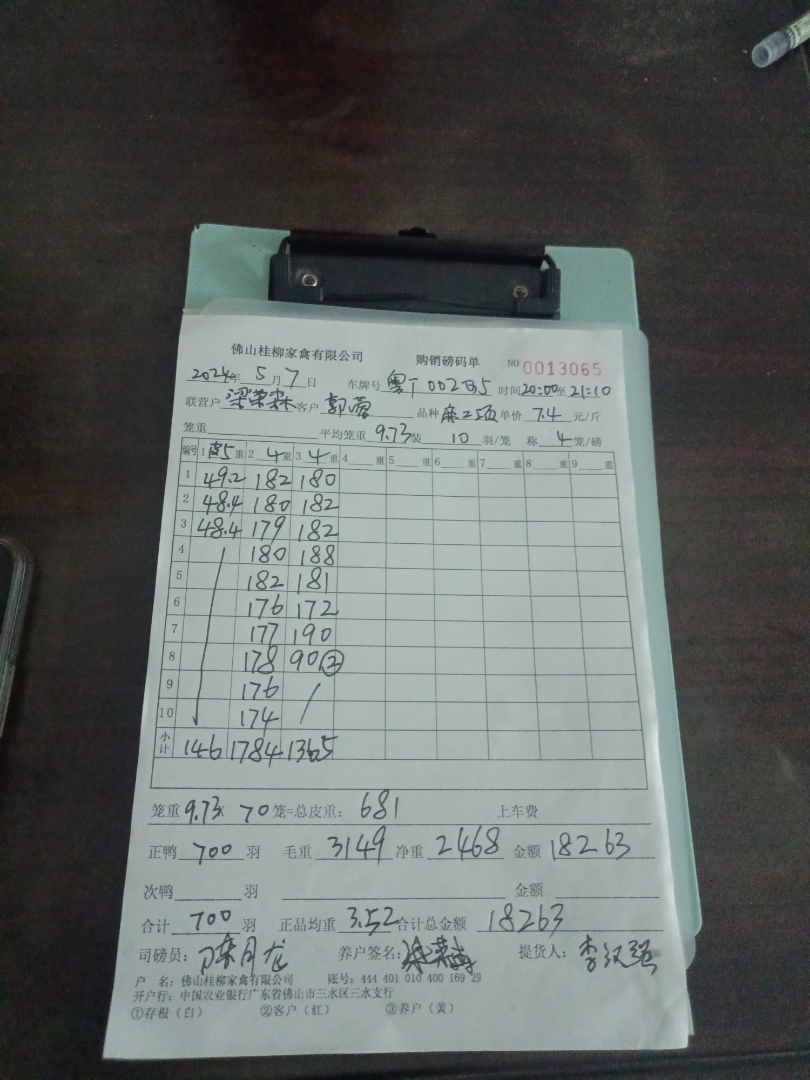 佛山桂柳家禽有限公司 购销磅码单 NO 0013065
2024年 5月 7日 车牌号 粤T002B5 时间20:00至21:10
联营户 梁荣森 客户 郭 品种 麻二项 单价 7.4 元/斤
笼重 平均笼重 9.73装 10 羽/笼 称 4 笼/磅
编号 1 5 重 2 4 重 3 4 重 4 重 5 重 6 重 7 重 8 重 9
1 49.2 182 180
2 48.4 180 182
3 48.4 179 182
4 180 188
5 182 181
6 176 172
7 177 190
8 178 90②
9 176
10 174
小计 146 1784 1365
笼重 9.73x 70 笼=总皮重: 681 上车费
正鸭 700 羽 毛重 3149 净重 2468 金额 18263
次鸭 羽 金额
合计 700 羽 正品均重 3.52 合计总金额 18263
司磅员: 陈月龙 养户签名: 提货人: 李汉强
户 名: 佛山桂柳家禽有限公司 账号: 444 401 010 400 169 29
开户行: 中国农业银行广东省佛山市三水区三水支行
①存根（白） ②客户（红） ③养户（黄）